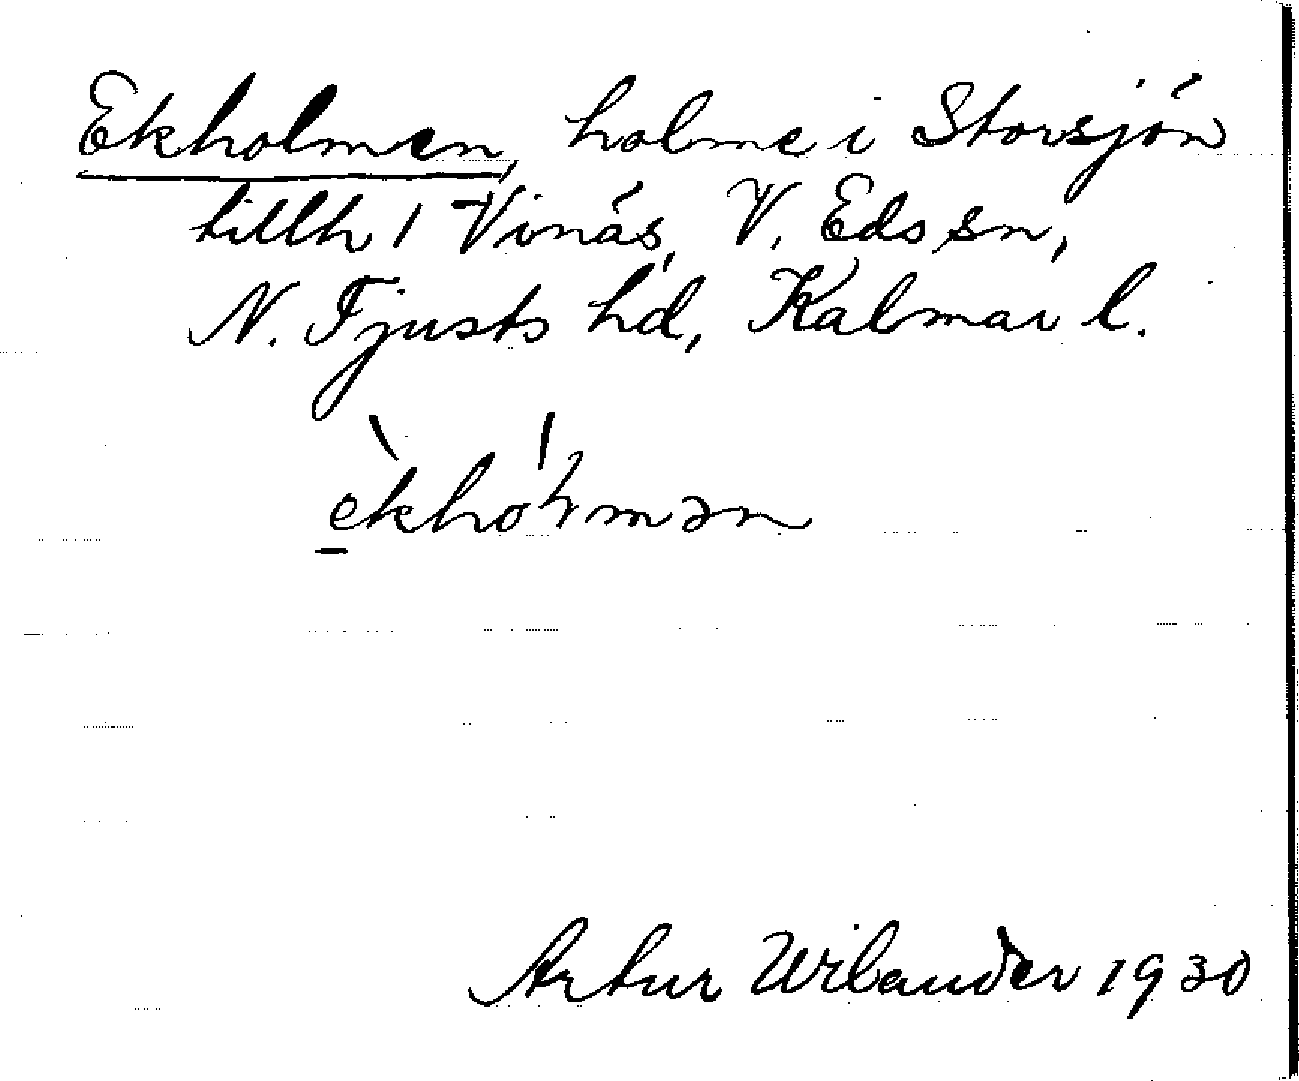 Ekholmen, holme i Storsjön
tillh / Vinäs, V. Eds sn,
N. Tjusts hd, Kalmar l.
Artur Wilander 1930